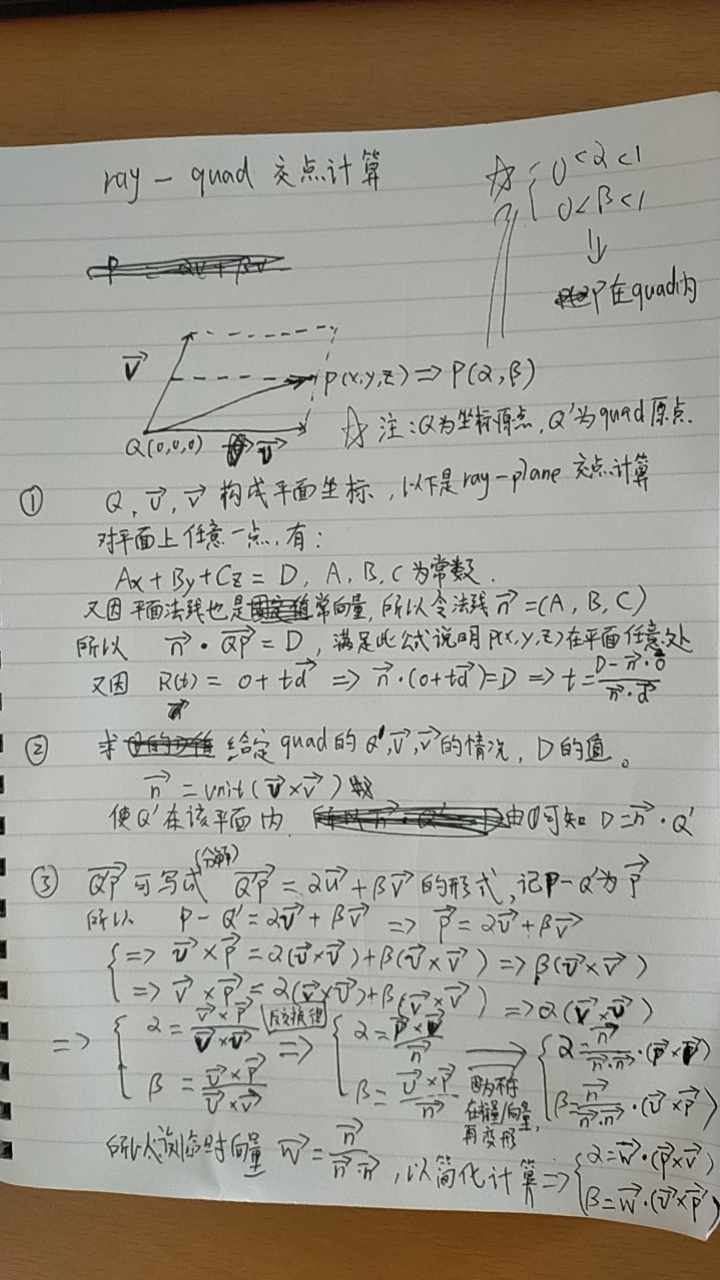 ray - quad 交点计算
☆ { 0<α<1
0<β<1
⇓
P在quad内
P = αu + βv
v⃗
P(x,y,z) ⇒ P(α,β)
Q(0,0,0) u⃗
☆ 注:Q为坐标原点,Q'为quad原点.
① Q, u⃗, v⃗ 构成平面坐标,以下是ray-plane 交点计算
对平面上任意一点,有:
Ax + By + Cz = D, A, B, C 为常数.
又因平面法线也是常向量,所以令法线 n⃗ = (A, B, C)
所以 n⃗ · QP⃗ = D, 满足此公式说明P(x,y,z)在平面任意处
又因 R(t) = O + td⃗ ⇒ n⃗·(O+td⃗)=D ⇒ t = (D - n⃗·O)/(n⃗·d⃗)
② 求 给定 quad的 Q',u⃗,v⃗的情况, D的值。
n⃗ = unit(u⃗×v⃗)
使Q'在该平面内 由①可知 D=n⃗·Q'
③ Q'P⃗ 可写成(分解) Q'P⃗ = αu⃗ + βv⃗ 的形式,记P-Q'为p⃗
所以 P - Q' = αu⃗ + βv⃗ ⇒ p⃗ = αu⃗ + βv⃗
{ ⇒ u⃗ × p⃗ = α(u⃗×u⃗) + β(u⃗×v⃗) ⇒ β(u⃗×v⃗)
⇒ v⃗ × p⃗ = α(v⃗×u⃗) + β(v⃗×v⃗) ⇒ α(v⃗×u⃗)
⇒ { α = (v⃗×p⃗)/(v⃗×u⃗) 反交换律 ⇒ { α = (p⃗×v⃗)/n⃗ → { α = n⃗/(n⃗·n⃗)·(p⃗×v⃗)
β = (u⃗×p⃗)/(u⃗×v⃗) β = (u⃗×p⃗)/n⃗ 因为不存在向量/向量,再变形 β = n⃗/(n⃗·n⃗)·(u⃗×p⃗)
所以 向量 w⃗ = n⃗/(n⃗·n⃗), 以简化计算 ⇒ { α = w⃗·(p⃗×v⃗)
β = w⃗·(u⃗×p⃗)